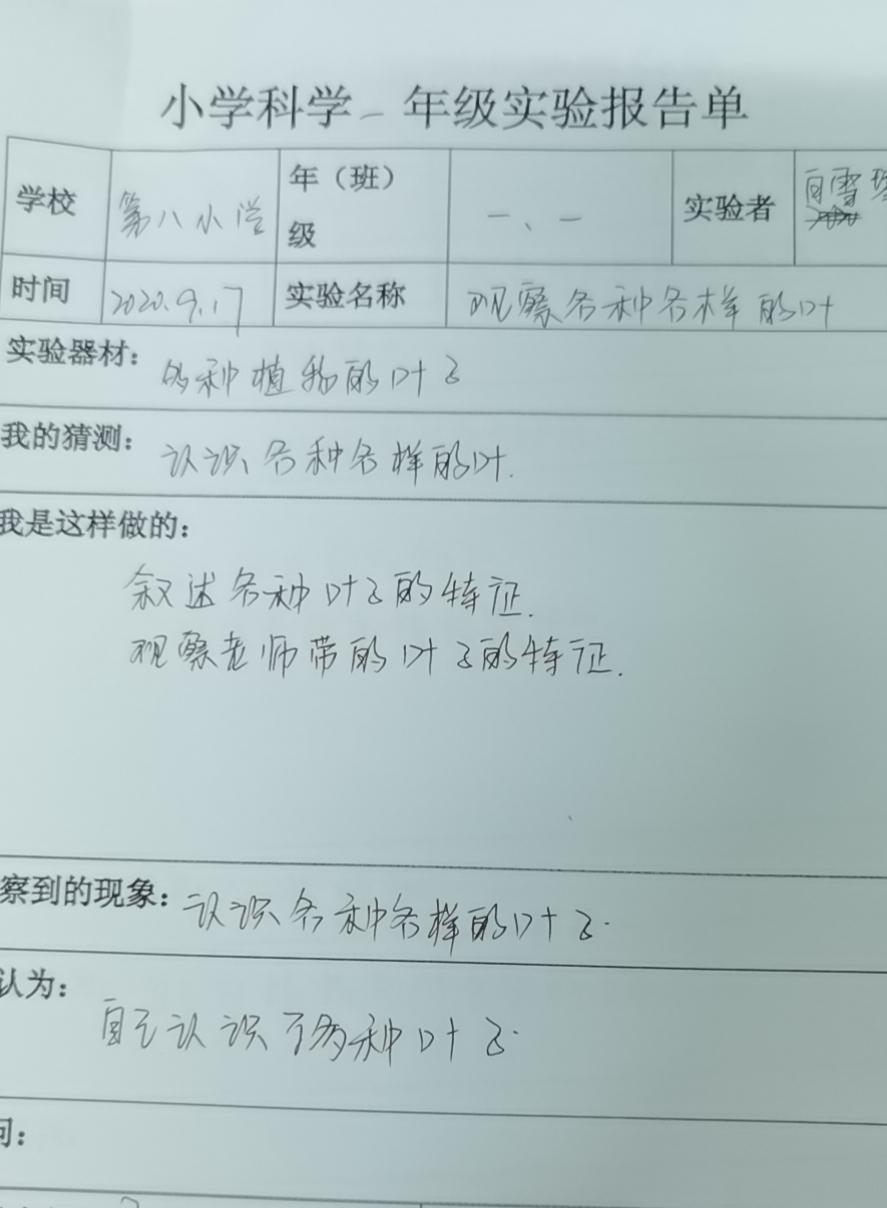 小学科学一年级实验报告单
学校 第八小学 年（班）级 一、一 实验者
时间 2020.9.17 实验名称 观察各种各样的叶
实验器材：多种植物的叶子
我的猜测：认识各种各样的叶.
我是这样做的：
叙述各种叶子的特征.
观察老师带的叶子的特征.
察到的现象：认识各种各样的叶子.
认为：
自己认识了多种叶子.
问：